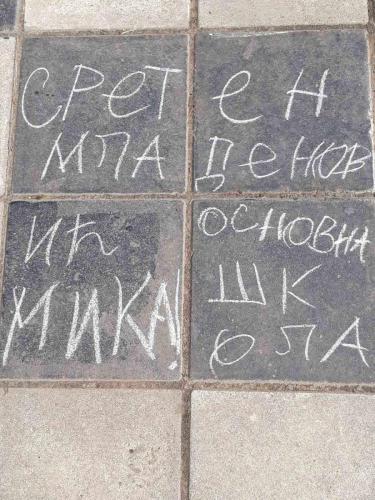 СРЕТЕН
МЛАДЕНОВ
ИЋ
МИКА!
ОСНОВНА
ШК
ОЛА